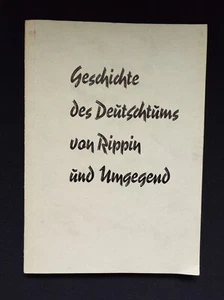 Geschichte
des Deutschtums
von Rippin
und Umgegend